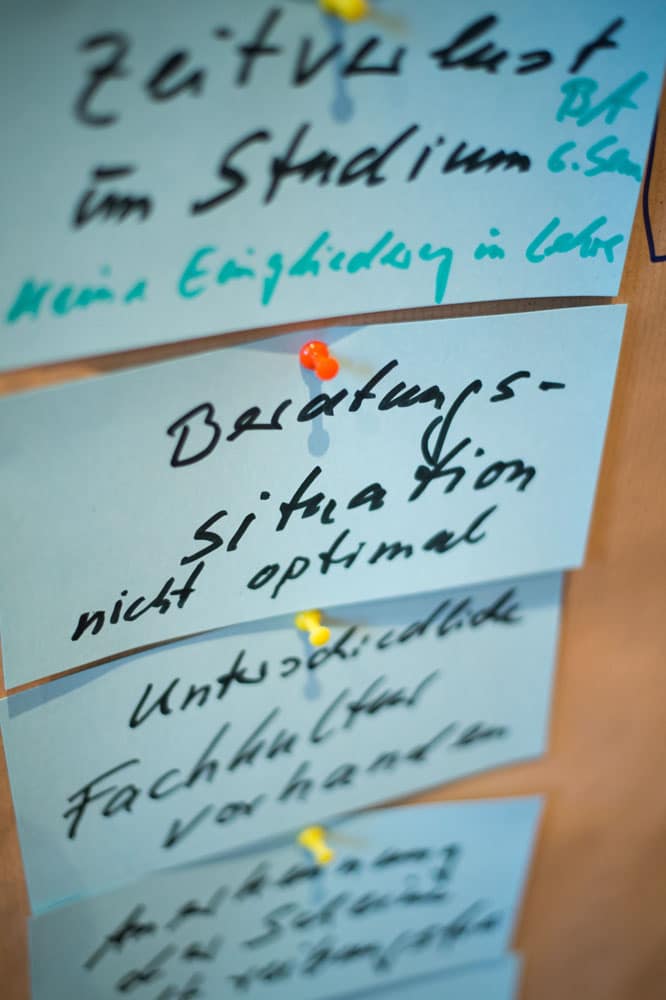 Zeitverlust
im Studium
BA
6. Sem
keine Eingliederung in Lehre
Beratungs-
situation
nicht optimal
Unterschiedliche
Fachkultur
vorhanden
Anerkennung
der Scheine